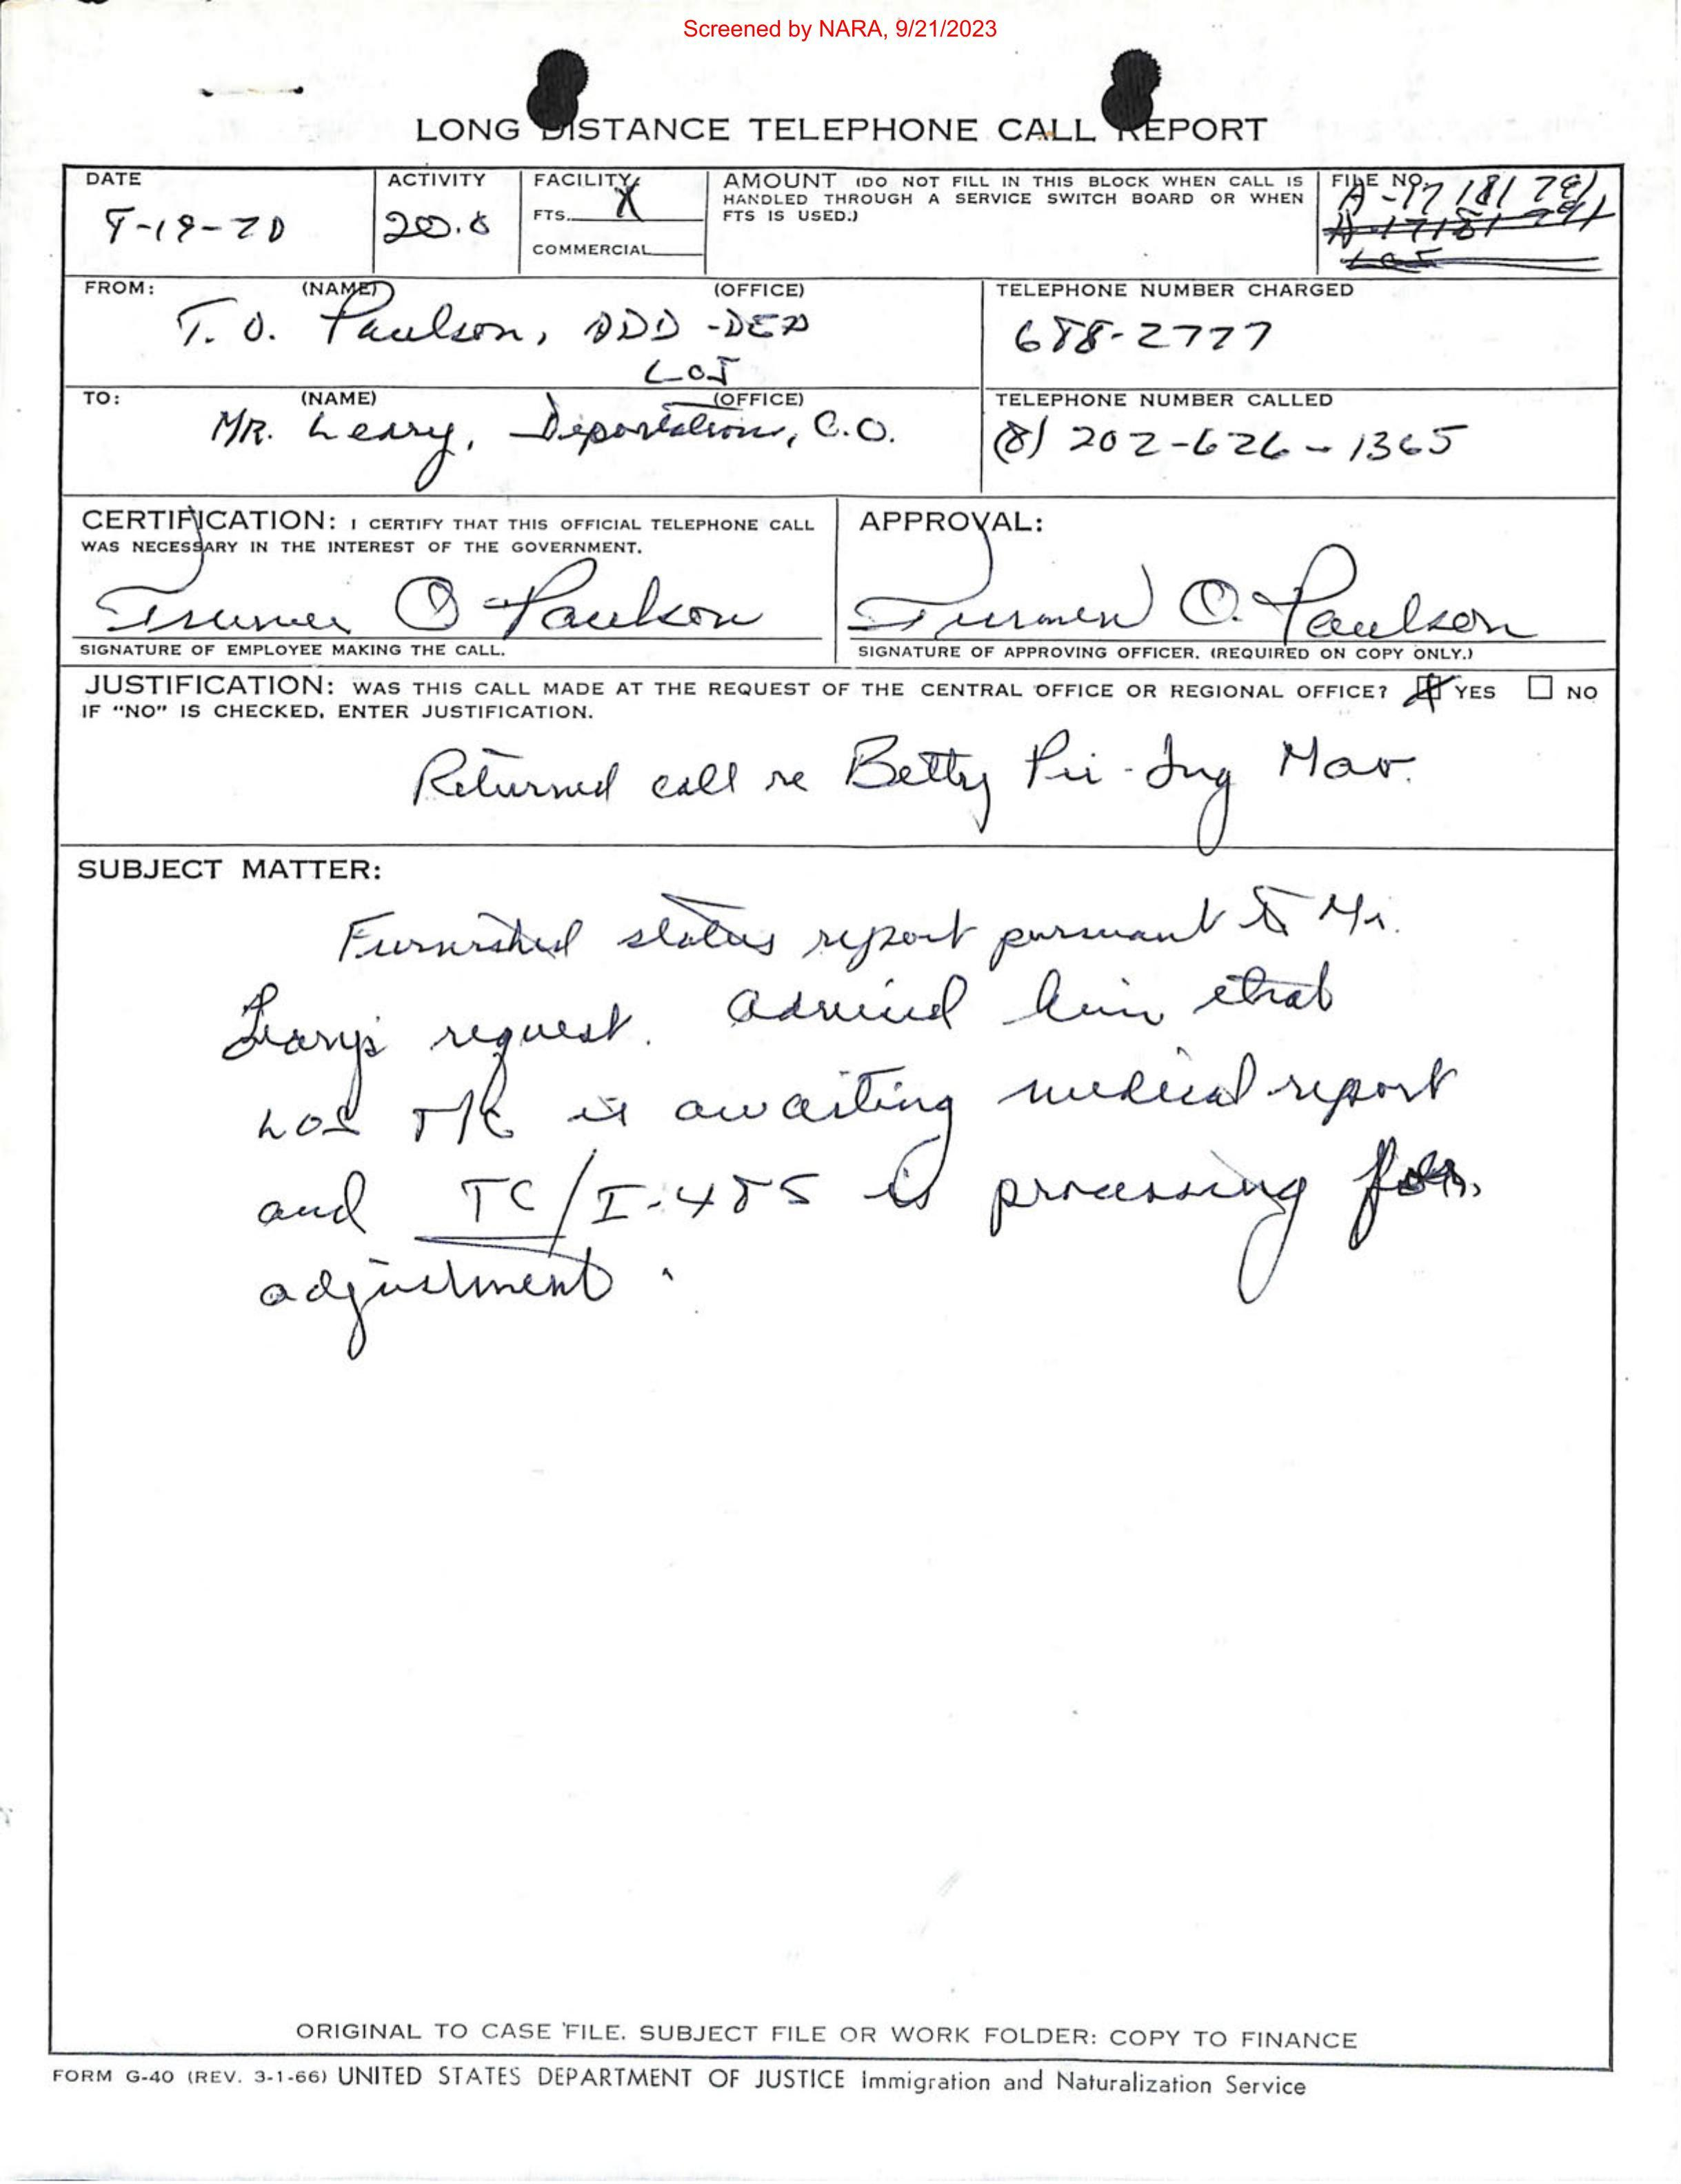 Screened by NARA, 9/21/2023
LONG DISTANCE TELEPHONE CALL REPORT
DATE
8-19-70
ACTIVITY
200.8
FACILITY
FTS. X
COMMERCIAL
AMOUNT (DO NOT FILL IN THIS BLOCK WHEN CALL IS
HANDLED THROUGH A SERVICE SWITCH BOARD OR WHEN
FTS IS USED.)
FILE NO.
A-17 181 781
FROM: (NAME) (OFFICE)
T. O. Paulson, ADD-DEP
LOS
TELEPHONE NUMBER CHARGED
688-2777
TO: (NAME) (OFFICE)
MR. Leary, Deportation, C.O.
TELEPHONE NUMBER CALLED
(8) 202-626-1365
CERTIFICATION: I CERTIFY THAT THIS OFFICIAL TELEPHONE CALL
WAS NECESSARY IN THE INTEREST OF THE GOVERNMENT.
O Paulson
SIGNATURE OF EMPLOYEE MAKING THE CALL.
APPROVAL:
O. Paulson
SIGNATURE OF APPROVING OFFICER. (REQUIRED ON COPY ONLY.)
JUSTIFICATION: WAS THIS CALL MADE AT THE REQUEST OF THE CENTRAL OFFICE OR REGIONAL OFFICE? YES NO
IF "NO" IS CHECKED, ENTER JUSTIFICATION.
Returned call re Betty Pei-Ing Mao.
SUBJECT MATTER:
Furnished status report pursuant to Mr.
Leary's request. Advised him that
LOS is awaiting medical report
and TC/I-485 is processing for
adjustment.
ORIGINAL TO CASE FILE. SUBJECT FILE OR WORK FOLDER: COPY TO FINANCE
FORM G-40 (REV. 3-1-66) UNITED STATES DEPARTMENT OF JUSTICE Immigration and Naturalization Service